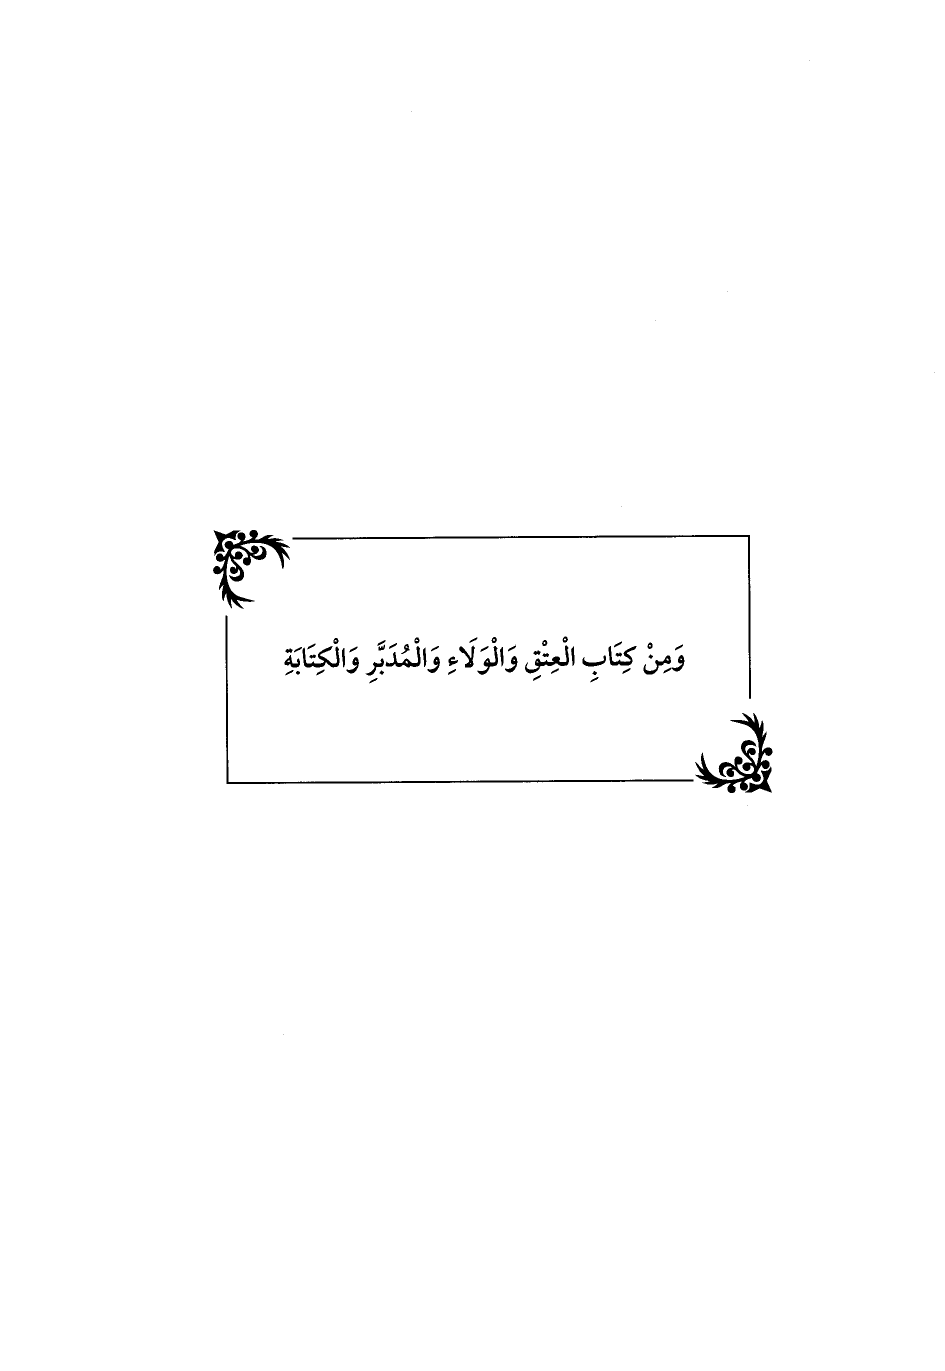 وَمِنْ كِتَابِ الْعِتْقِ وَالْوَلَاءِ وَالْمُدَبَّرِ وَالْكِتَابَةِ